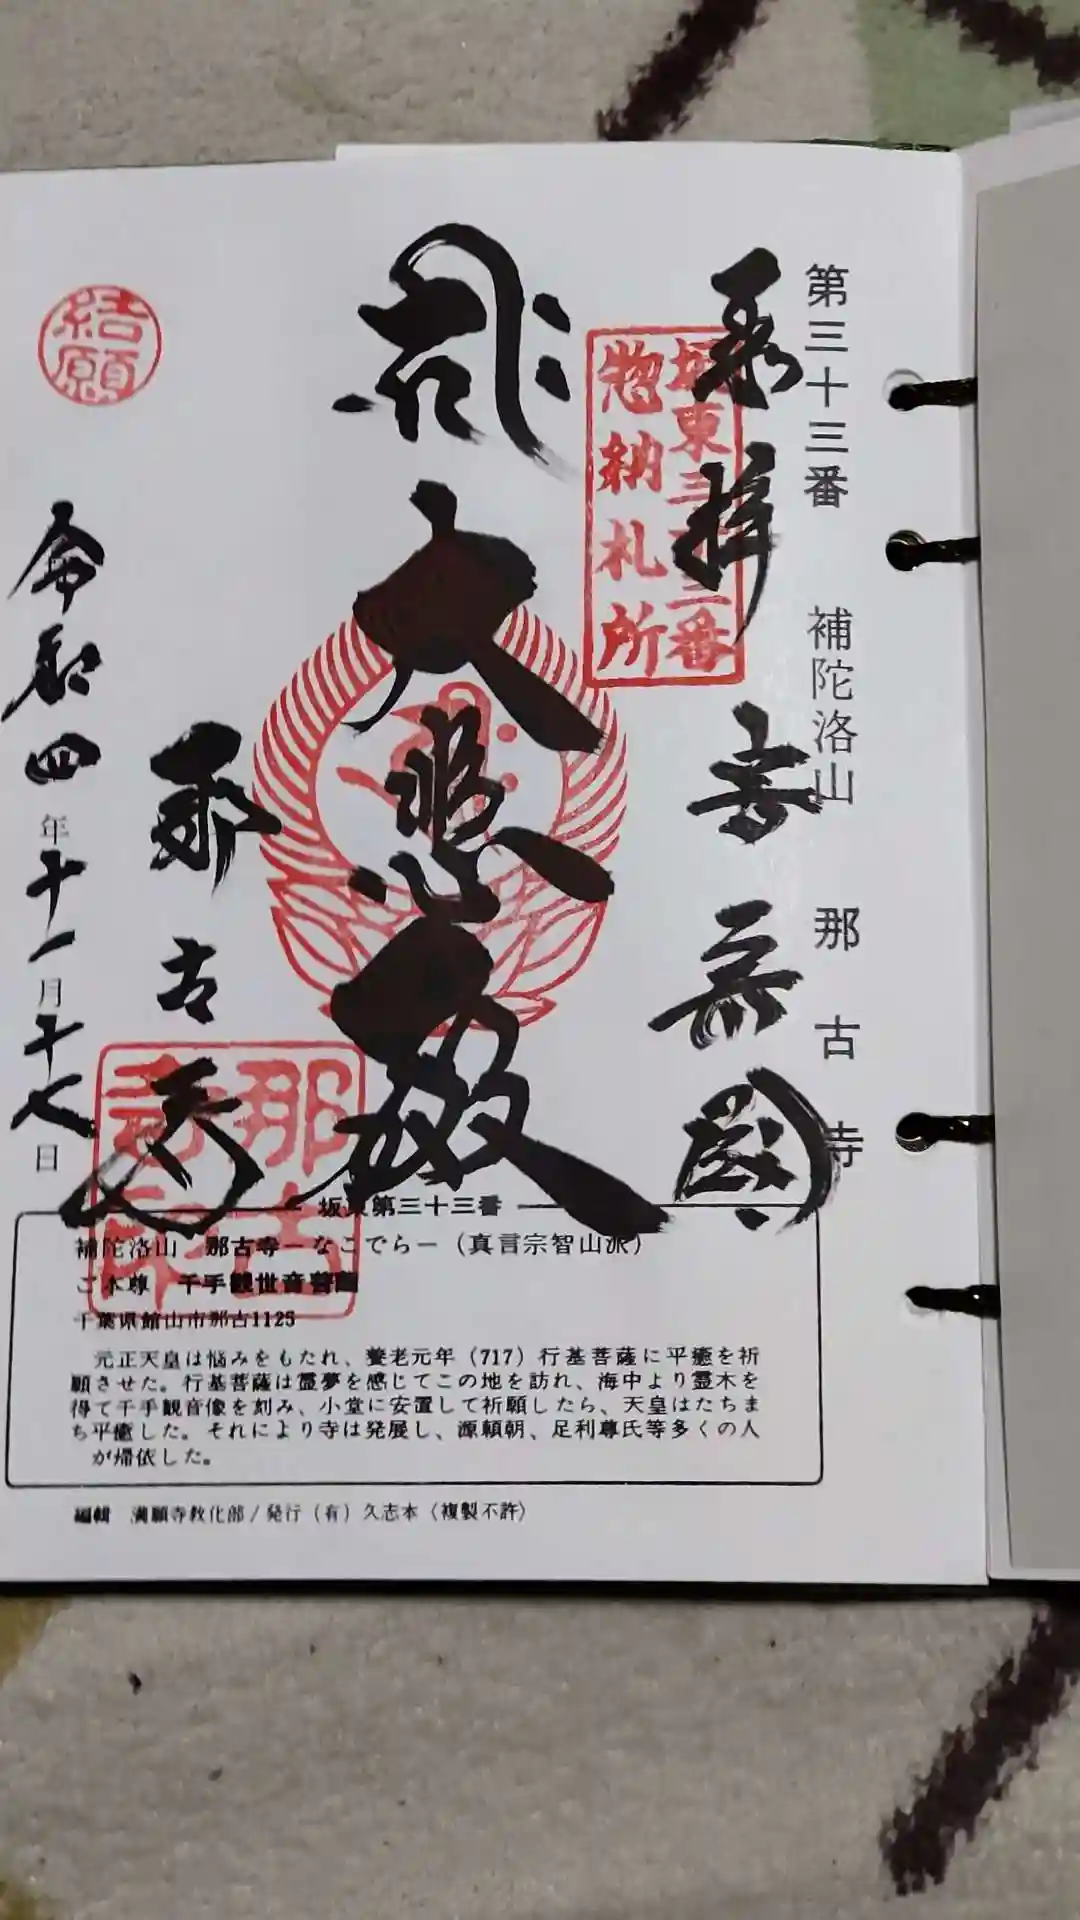 第三十三番 補陀洛山 那古寺
奉拝 安房國
坂東三十三番
惣納札所
大悲殿
那古寺
那古
寺印
結願
令和四年十一月十七日
坂東第三十三番
補陀洛山 那古寺―なこでら―（真言宗智山派）
ご本尊 千手観世音菩薩
千葉県館山市那古1125
元正天皇は悩みをもたれ、養老元年（717）行基菩薩に平癒を祈
願させた。行基菩薩は霊夢を感じてこの地を訪れ、海中より霊木を
得て千手観音像を刻み、小堂に安置して祈願したら、天皇はたちま
ち平癒した。それにより寺は発展し、源頼朝、足利尊氏等多くの人
が帰依した。
編輯 満願寺教化部/発行（有）久志本（複製不許）